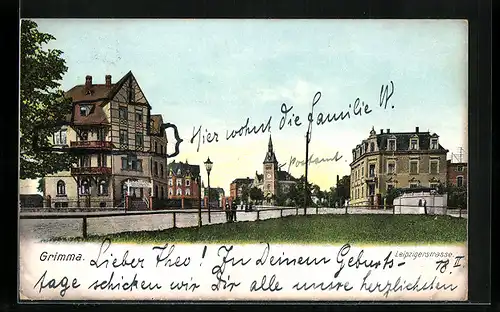 Hier wohnt die Familie W.
Postamt
Grimma.
Leipzigerstrasse.
Lieber Theo! In Deinem Geburts-
18. II.
tage schicken wir Dir alle unsre herzlichsten